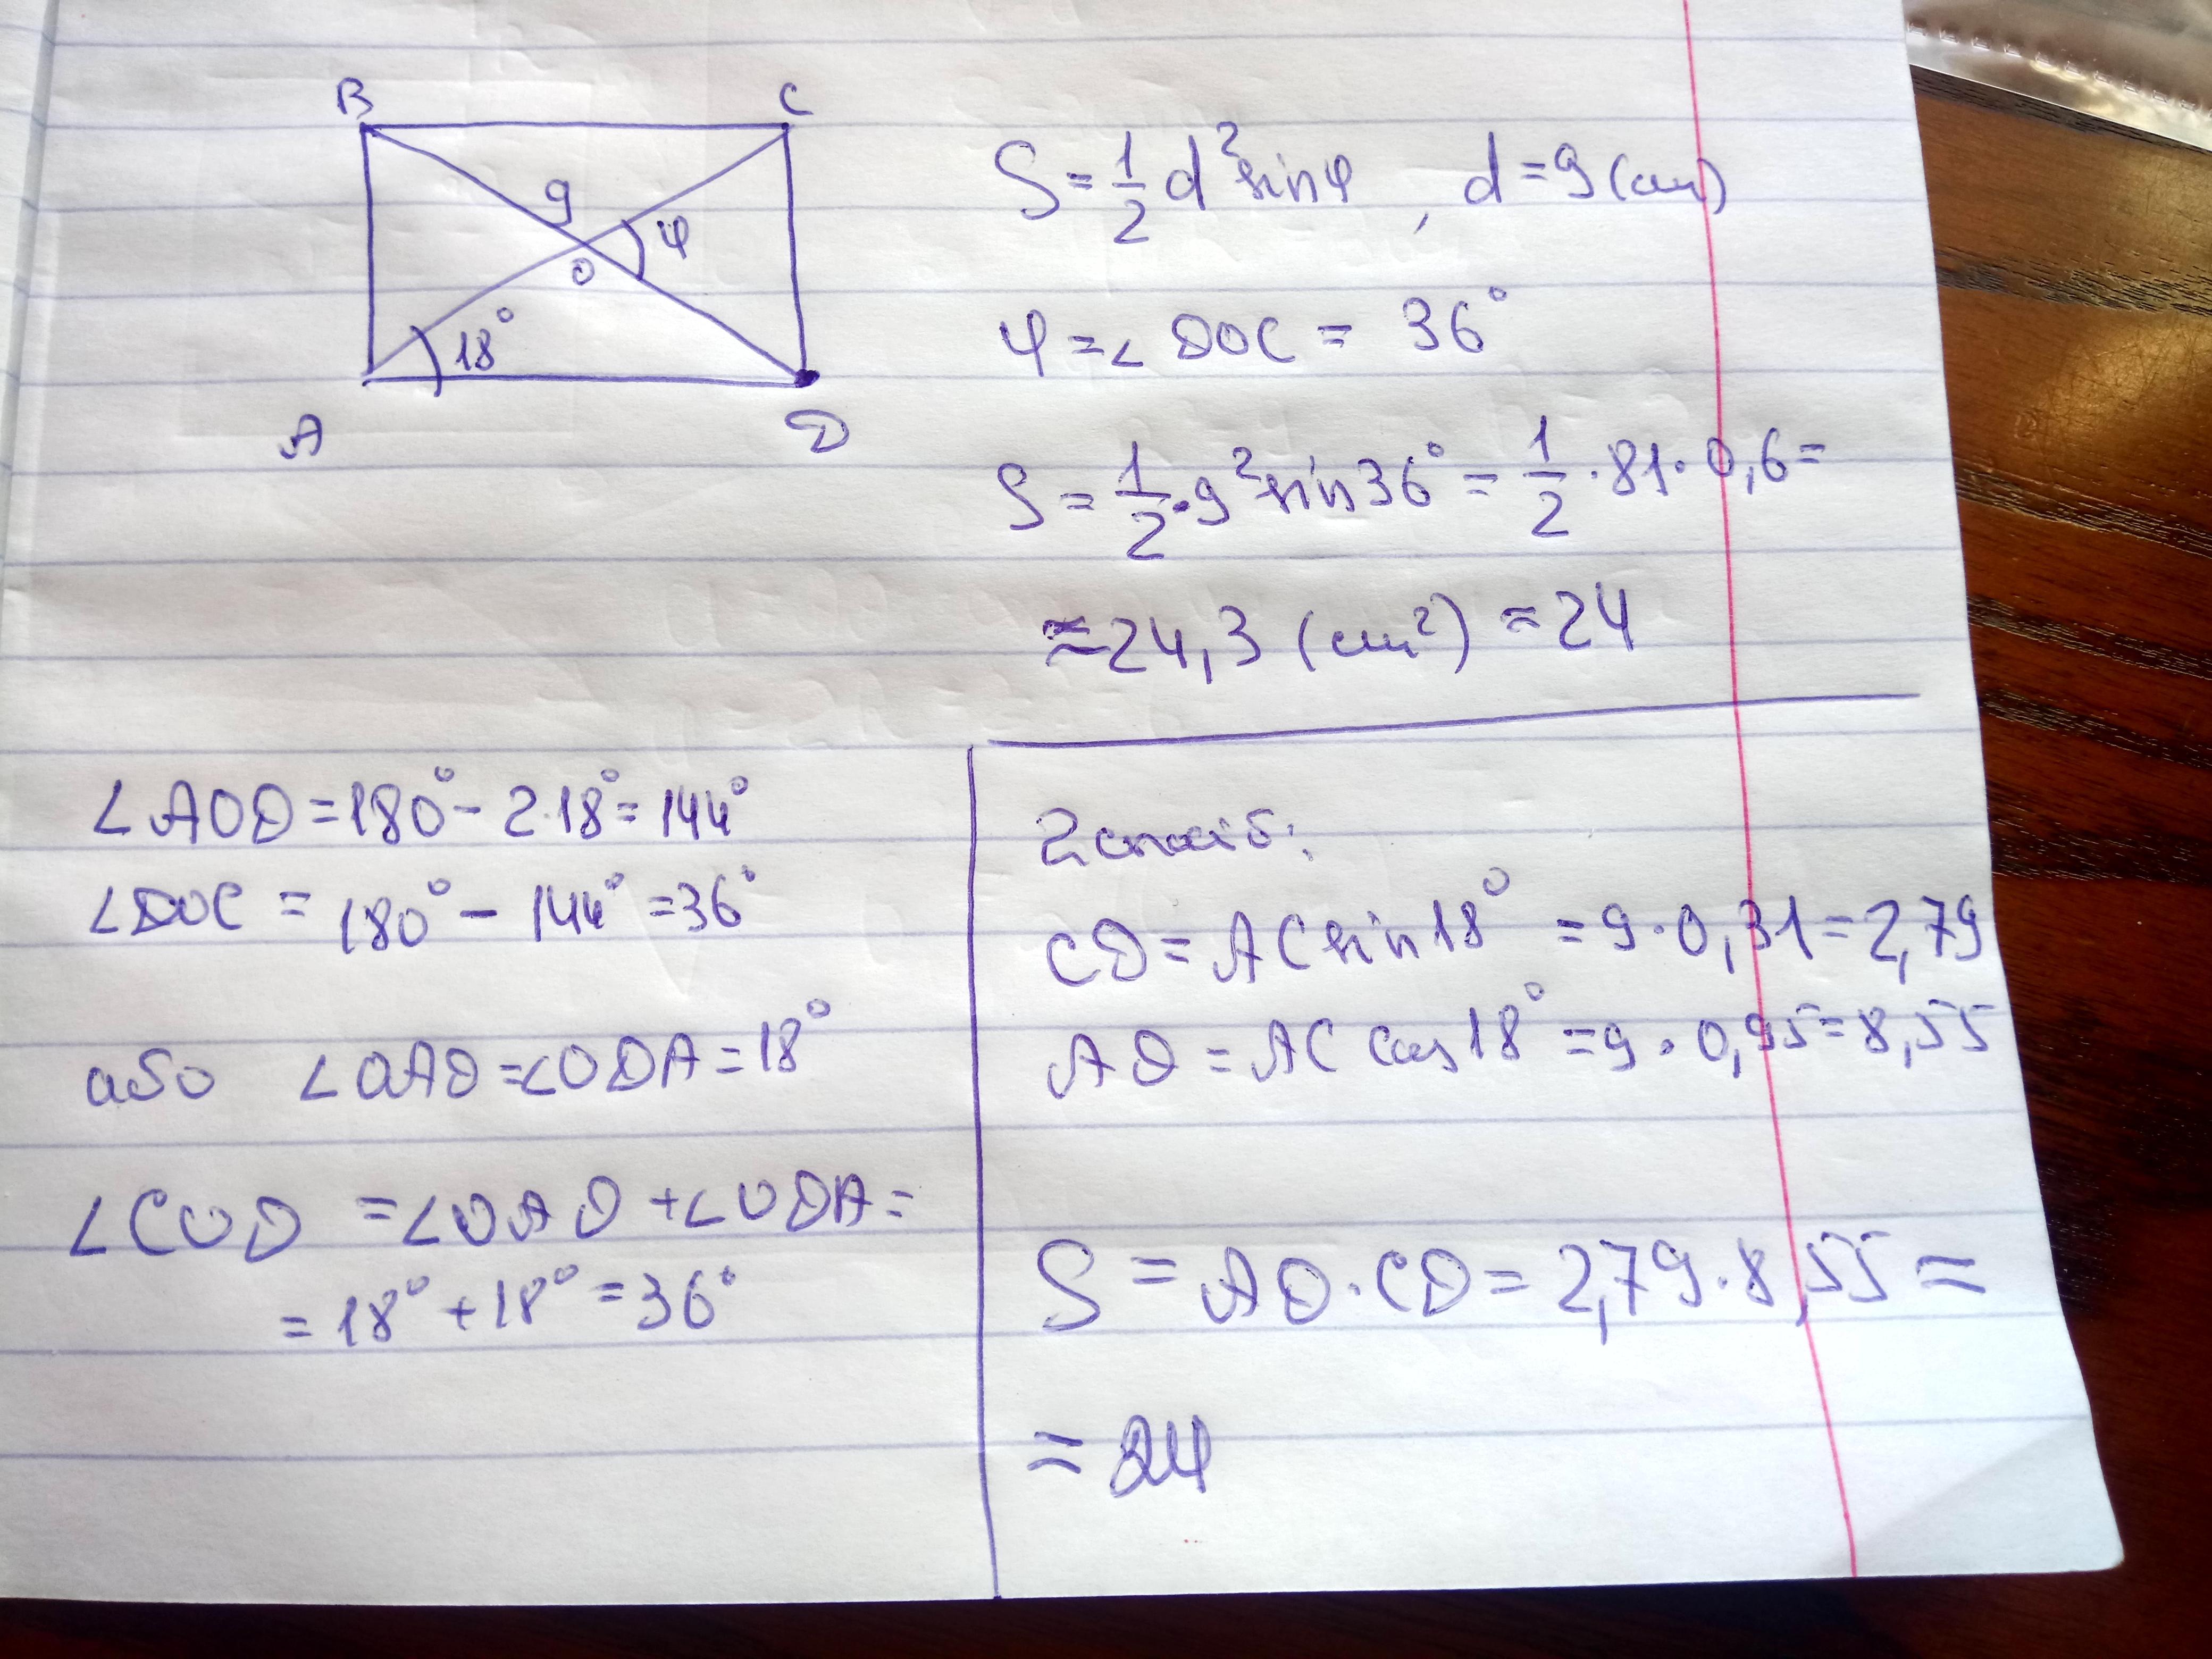 B C
9
φ
O
18°
A D
S = 1/2 d² sin φ , d = 9 (см)
φ = ∠ DOC = 36°
S = 1/2 · 9² sin 36° = 1/2 · 81 · 0,6 =
≈ 24,3 (см²) ≈ 24
∠AOD = 180° - 2·18° = 144°
∠DOC = 180° - 144° = 36°
або ∠OAD = ∠ODA = 18°
∠COD = ∠OAD + ∠ODA =
= 18° + 18° = 36°
2 спосіб:
CD = AC sin 18° = 9 · 0,31 = 2,79
AD = AC cos 18° = 9 · 0,95 = 8,55
S = AD · CD = 2,79 · 8,55 =
= 24